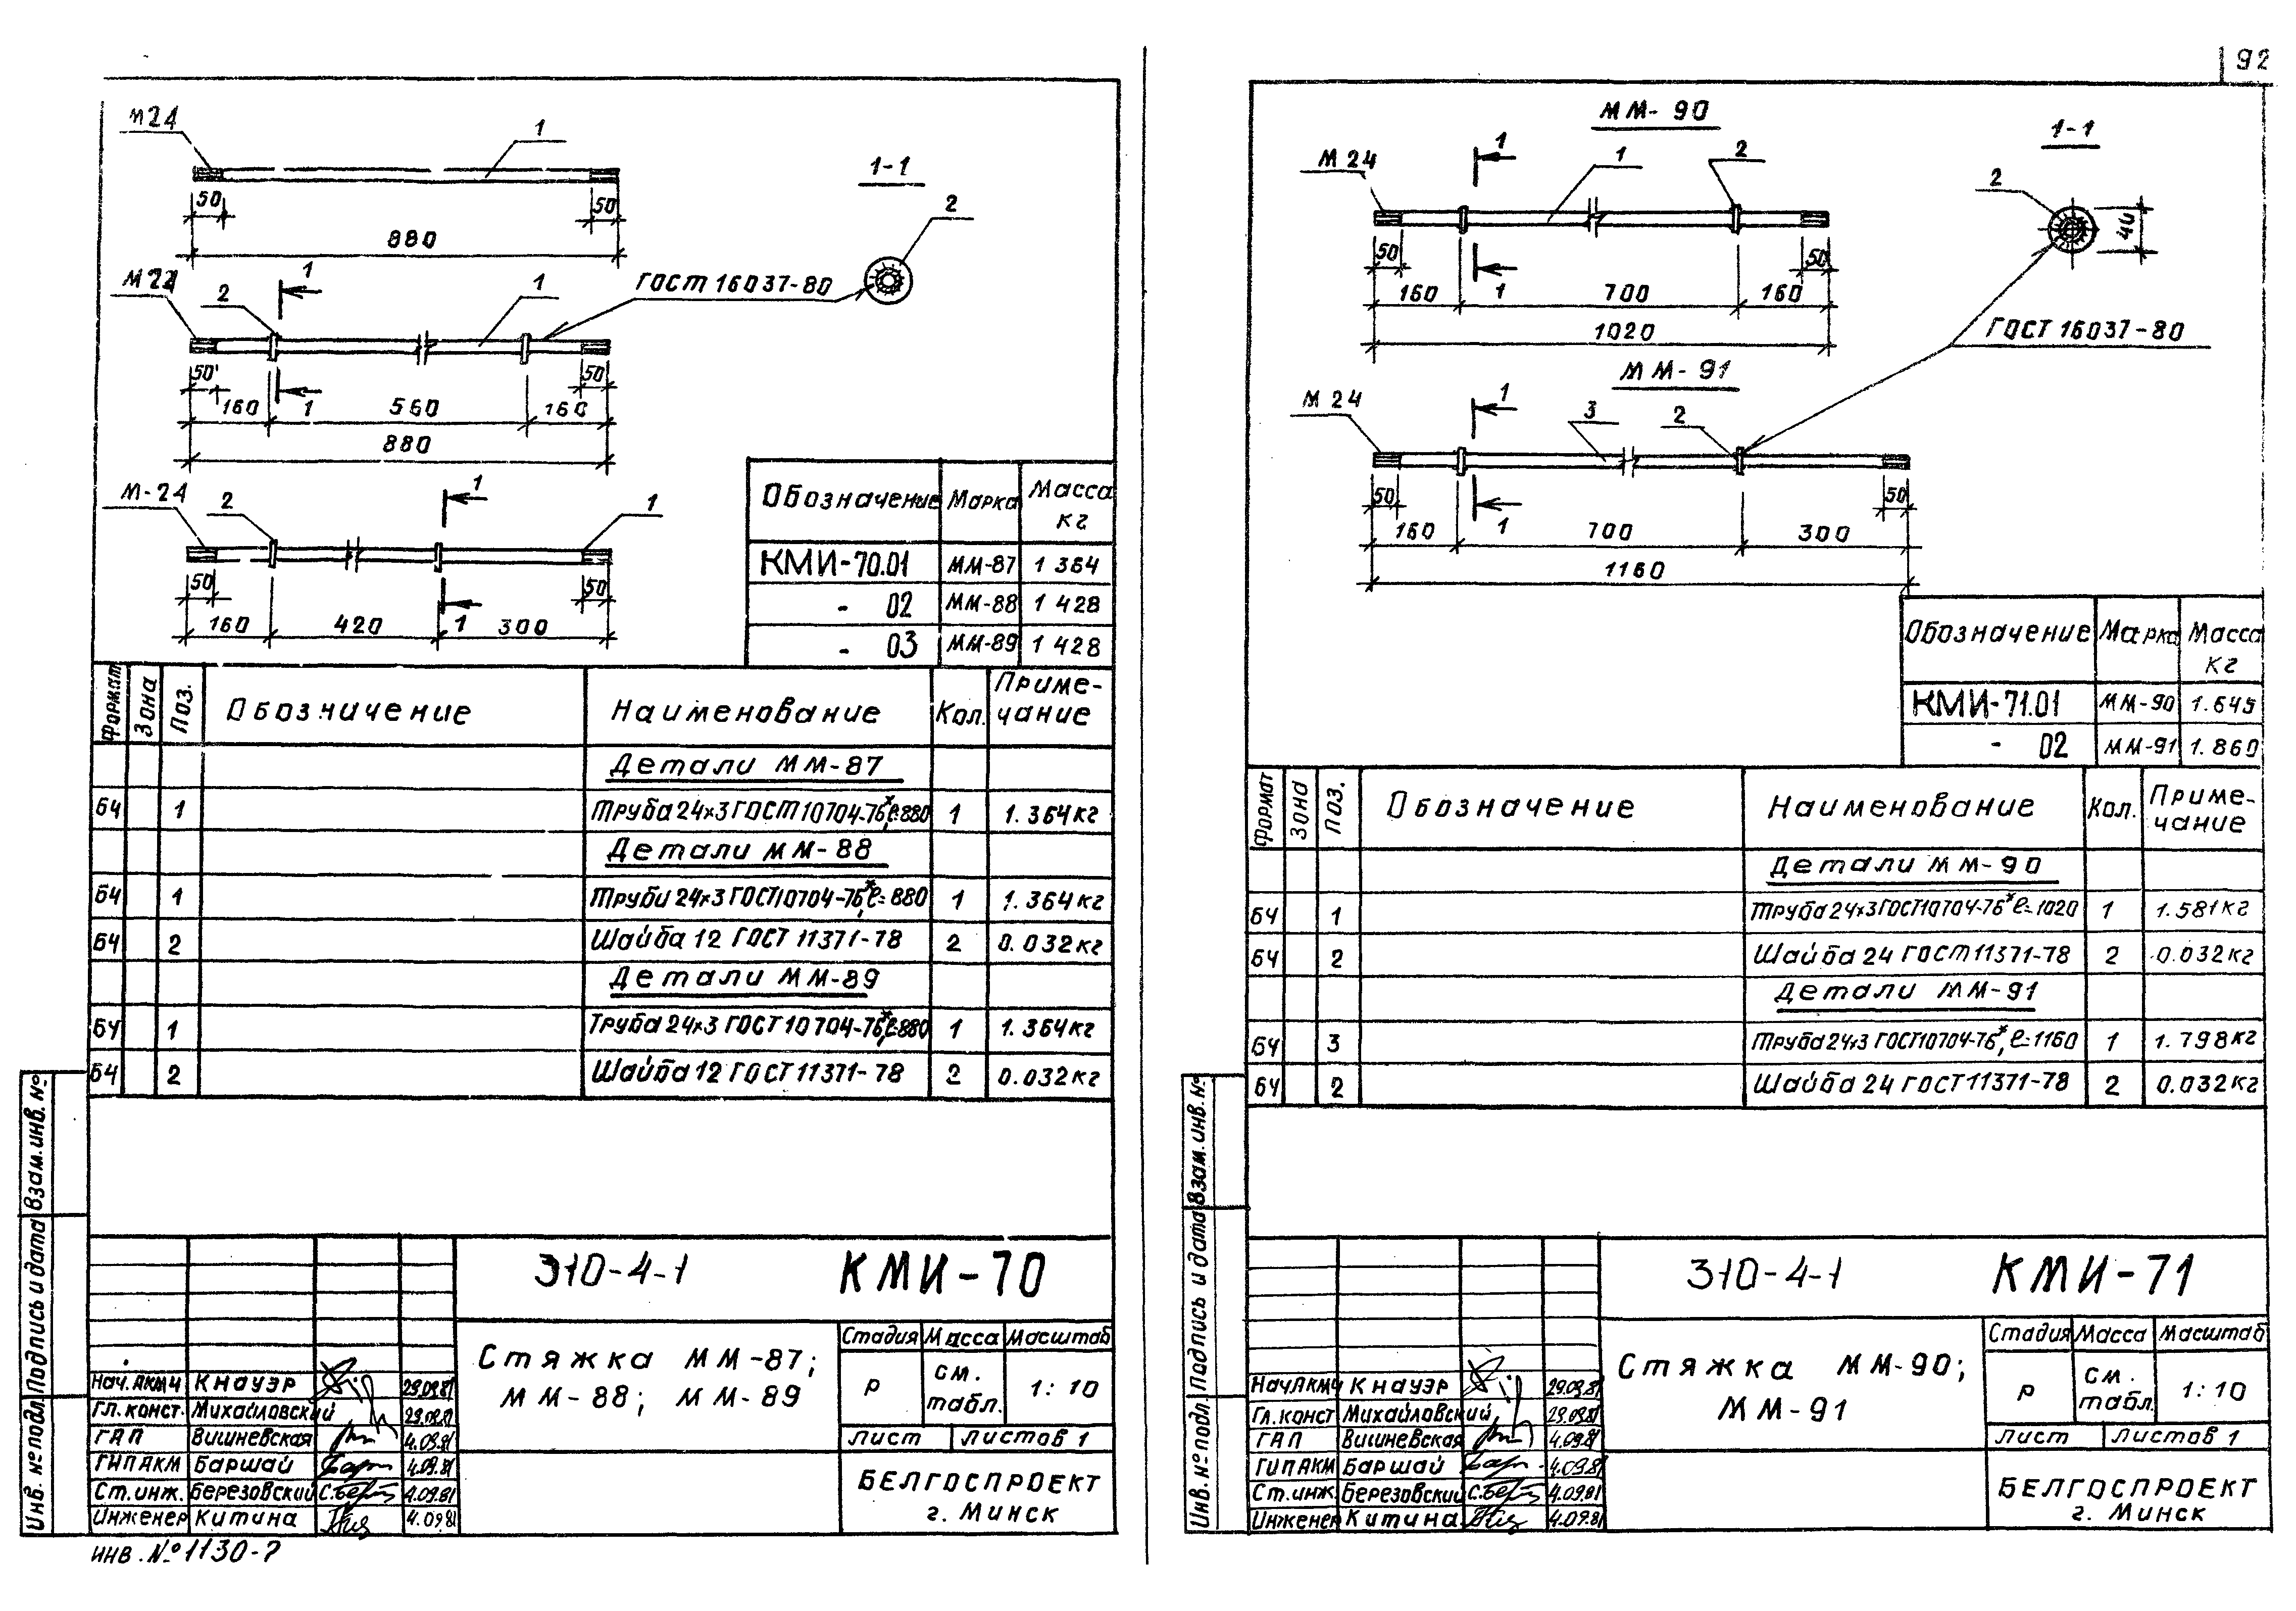 92
М24
1
50
50
880
1-1
2
М22
2
1
1
ГОСТ 16037-80
50
50
160
1
560
160
880
М-24
2
1
1
50
50
160
420
1
300
Обозначение Марка Масса кг
КМИ-70.01 ММ-87 1 364
- 02 ММ-88 1 428
- 03 ММ-89 1 428
Формат Зона Поз. Обозначение Наименование Кол. Приме-чание
Детали ММ-87
БЧ 1 Труба 24×3 ГОСТ 10704-76*, ℓ=880 1 1.364кг
Детали ММ-88
БЧ 1 Труби 24×3 ГОСТ 10704-76*, ℓ=880 1 1.364кг
БЧ 2 Шайба 12 ГОСТ 11371-78 2 0.032кг
Детали ММ-89
БЧ 1 Труба 24×3 ГОСТ 10704-76*, ℓ=880 1 1.364кг
БЧ 2 Шайба 12 ГОСТ 11371-78 2 0.032кг
Взам.инв.№
Подпись и дата
Инв.№подл.
310-4-1 КМИ-70
Стяжка ММ-87;
ММ-88; ММ-89
Стадия Масса Масштаб
Р см. табл. 1:10
Лист Листов 1
БЕЛГОСПРОЕКТ
г. Минск
Нач.АКМЧ Кнауэр 29.09.81
Гл.конст. Михайловский 29.09.81
ГАП Вишневская 4.09.81
ГИПАКМ Баршай 4.09.81
Ст.инж. Березовский 4.09.81
Инженер Китина 4.09.81
инв.№1130-7
ММ-90
М24
1
1
2
50
50
160
1
700
160
1020
1-1
2
40
ГОСТ 16037-80
ММ-91
М24
1
3
2
50
50
160
1
700
300
1160
Обозначение Марка Масса кг
КМИ-71.01 ММ-90 1.645
- 02 ММ-91 1.860
Формат Зона Поз. Обозначение Наименование Кол. Приме-чание
Детали ММ-90
БЧ 1 Труба 24×3 ГОСТ 10704-76* ℓ=1020 1 1.581кг
БЧ 2 Шайба 24 ГОСТ 11371-78 2 0.032кг
Детали ММ-91
БЧ 3 Труба 24×3 ГОСТ 10704-76*, ℓ=1160 1 1.798кг
БЧ 2 Шайба 24 ГОСТ 11371-78 2 0.032кг
Взам.инв.№
Подпись и дата
Инв.№подл.
310-4-1 КМИ-71
Стяжка ММ-90;
ММ-91
Стадия Масса Масштаб
Р см. табл. 1:10
Лист Листов 1
БЕЛГОСПРОЕКТ
г. Минск
Нач.АКМЧ Кнауэр 29.09.81
Гл.конст Михайловский 29.09.81
ГАП Вишневская 4.09.81
ГИПАКМ Баршай 4.09.81
Ст.инж. Березовский 4.09.81
Инженер Китина 4.09.81